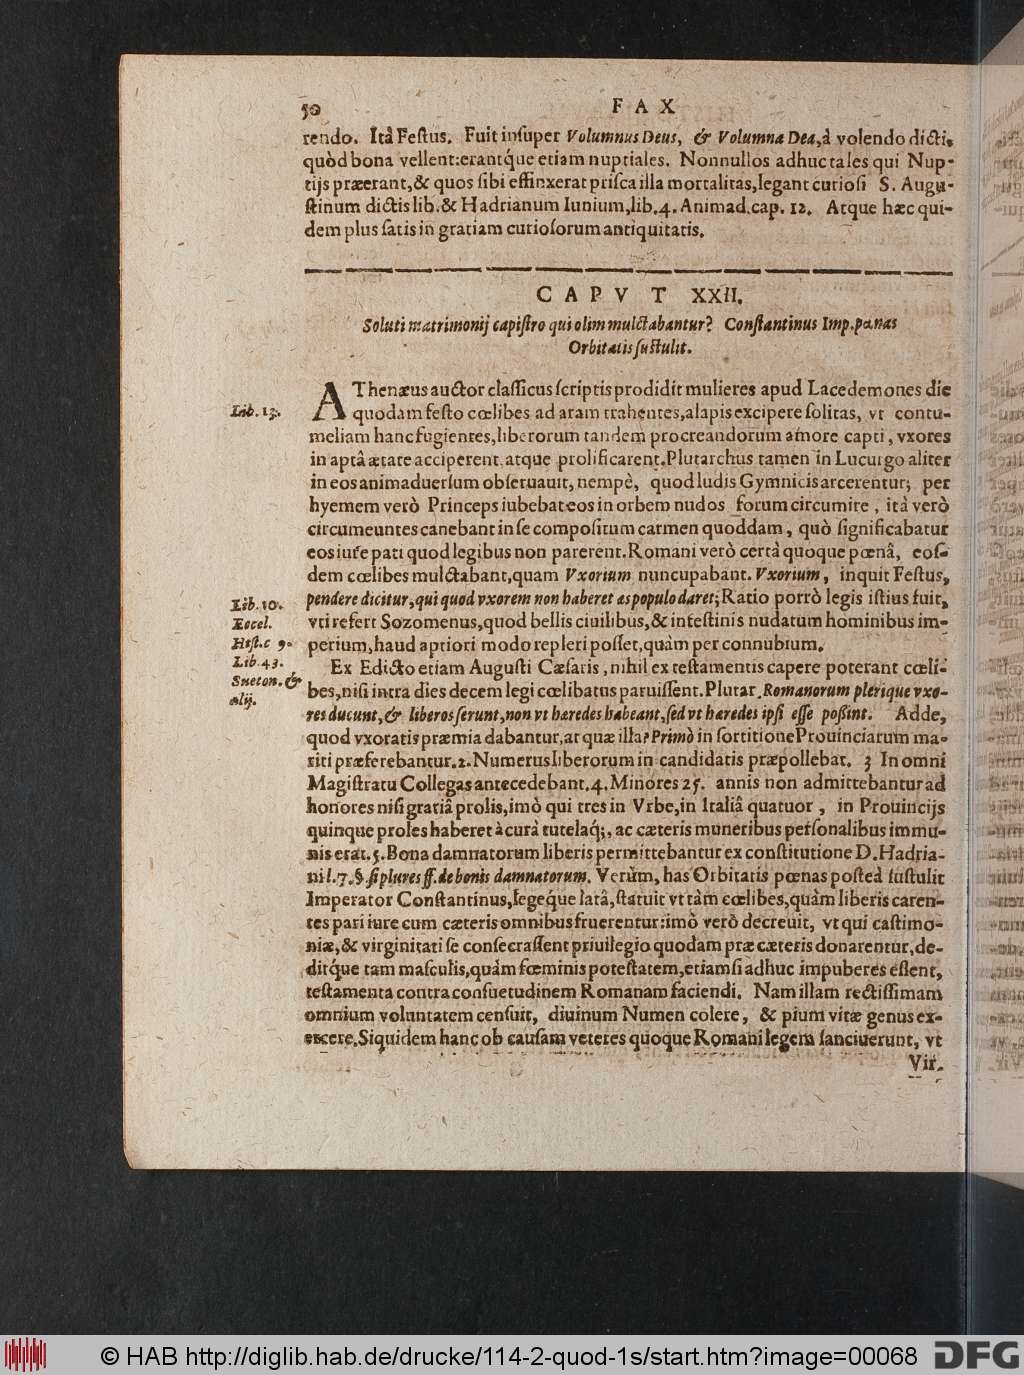 50 FAX
rendo. Itâ Festus. Fuit insuper Volumnus Deus, & Volumna Dea, à volendo dicti,
quòd bona vellent: erantq́ue etiam nuptiales. Nonnullos adhuc tales qui Nup-
tijs præerant, & quos sibi effinxerat prisca illa mortalitas, legant curiosi S. Augu-
stinum dictis lib. & Hadrianum Iunium, lib. 4. Animad. cap. 12. Atque hæc qui-
dem plus satis in gratiam curiosorum antiquitatis.
CAPVT XXII.
Soluti matrimonij capistro qui olim mulctabantur? Constantinus Imp. pœnas
Orbitatis sustulit.
AThenæus auctor classicus scriptis prodidit mulieres apud Lacedemones die
Lib. 13. quodam festo cœlibes ad aram trahentes, alapis excipere solitas, vt contu-
meliam hanc fugientes, liberorum tandem procreandorum amore capti, vxores
in aptâ ætate acciperent, atque prolificarent. Plutarchus tamen in Lucurgo aliter
in eos animaduersum obseruauit, nempè, quod ludis Gymnicis arcerentur; per
hyemem verò Princeps iubebat eos in orbem nudos forum circumire, itâ verò
circumeuntes canebant in se compositum carmen quoddam, quò significabatur
eos iure pati quod legibus non parerent. Romani verò certâ quoque pœnâ, eos-
dem cœlibes mulctabant, quam Vxorium nuncupabant. Vxorium, inquit Festus,
Lib. 10. pendere dicitur, qui quod vxorem non haberet æs populo daret; Ratio porrò legis istius fuit,
Eccl. vti refert Sozomenus, quod bellis ciuilibus, & intestinis nudatum hominibus im-
Hist. c 9. perium, haud aptiori modo repleri posset, quàm per connubium.
Lib. 43. Ex Edicto etiam Augusti Cæsaris, nihil ex testamentis capere poterant cœli-
Sueton. & bes, nisi intra dies decem legi cœlibatus paruissent. Plutar. Romanorum plerique vxo-
alij. res ducunt, & liberos serunt, non vt hæredes habeant, sed vt hæredes ipsi esse possint. Adde,
quod vxoratis præmia dabantur, at quæ illa? Primò in sortitione Prouinciarum ma-
riti præferebantur. 2. Numerus liberorum in candidatis præpollebat. 3 In omni
Magistratu Collegas antecedebant. 4. Minores 25. annis non admittebantur ad
honores nisi gratiâ prolis, imò qui tres in Vrbe, in Italiâ quatuor, in Prouincijs
quinque proles haberet à curâ tutelaq́;, ac cæteris muneribus personalibus immu-
nis erat. 5. Bona damnatorum liberis permittebantur ex constitutione D. Hadria-
ni l. 7. §. si plures ff. de bonis damnatorum. Verùm, has Orbitatis pœnas posteà sustulit
Imperator Constantinus, legeq́ue latâ, statuit vt tàm cœlibes, quàm liberis caren-
tes pari iure cum cæteris omnibus fruerentur: imò verò decreuit, vt qui castimo-
niæ, & virginitati se consecrassent priuilegio quodam præ cæteris donarentur, de-
ditq́ue tam masculis, quàm fœminis potestatem, etiamsi adhuc impuberes essent,
testamenta contra consuetudinem Romanam faciendi. Nam illam rectissimam
omnium voluntatem censuit, diuinum Numen colere, & pium vitæ genus ex-
ercere. Siquidem hanc ob causam veteres quoque Romani legem sanciuerunt, vt
Vir-
© HAB http://diglib.hab.de/drucke/114-2-quod-1s/start.htm?image=00068 DFG